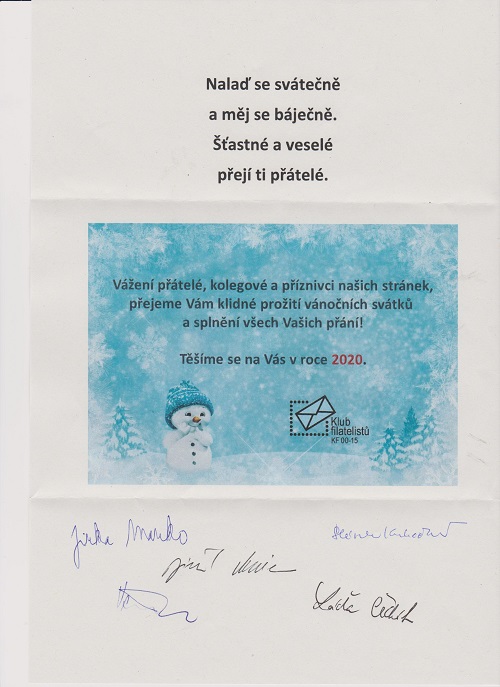 Nalaď se svátečně
a měj se báječně.
Šťastné a veselé
přejí ti přátelé.
Vážení přátelé, kolegové a příznivci našich stránek,
přejeme Vám klidné prožití vánočních svátků
a splnění všech Vašich přání!
Těšíme se na Vás v roce 2020.
Klub
filatelistů
KF 00-15
Jirka Marko